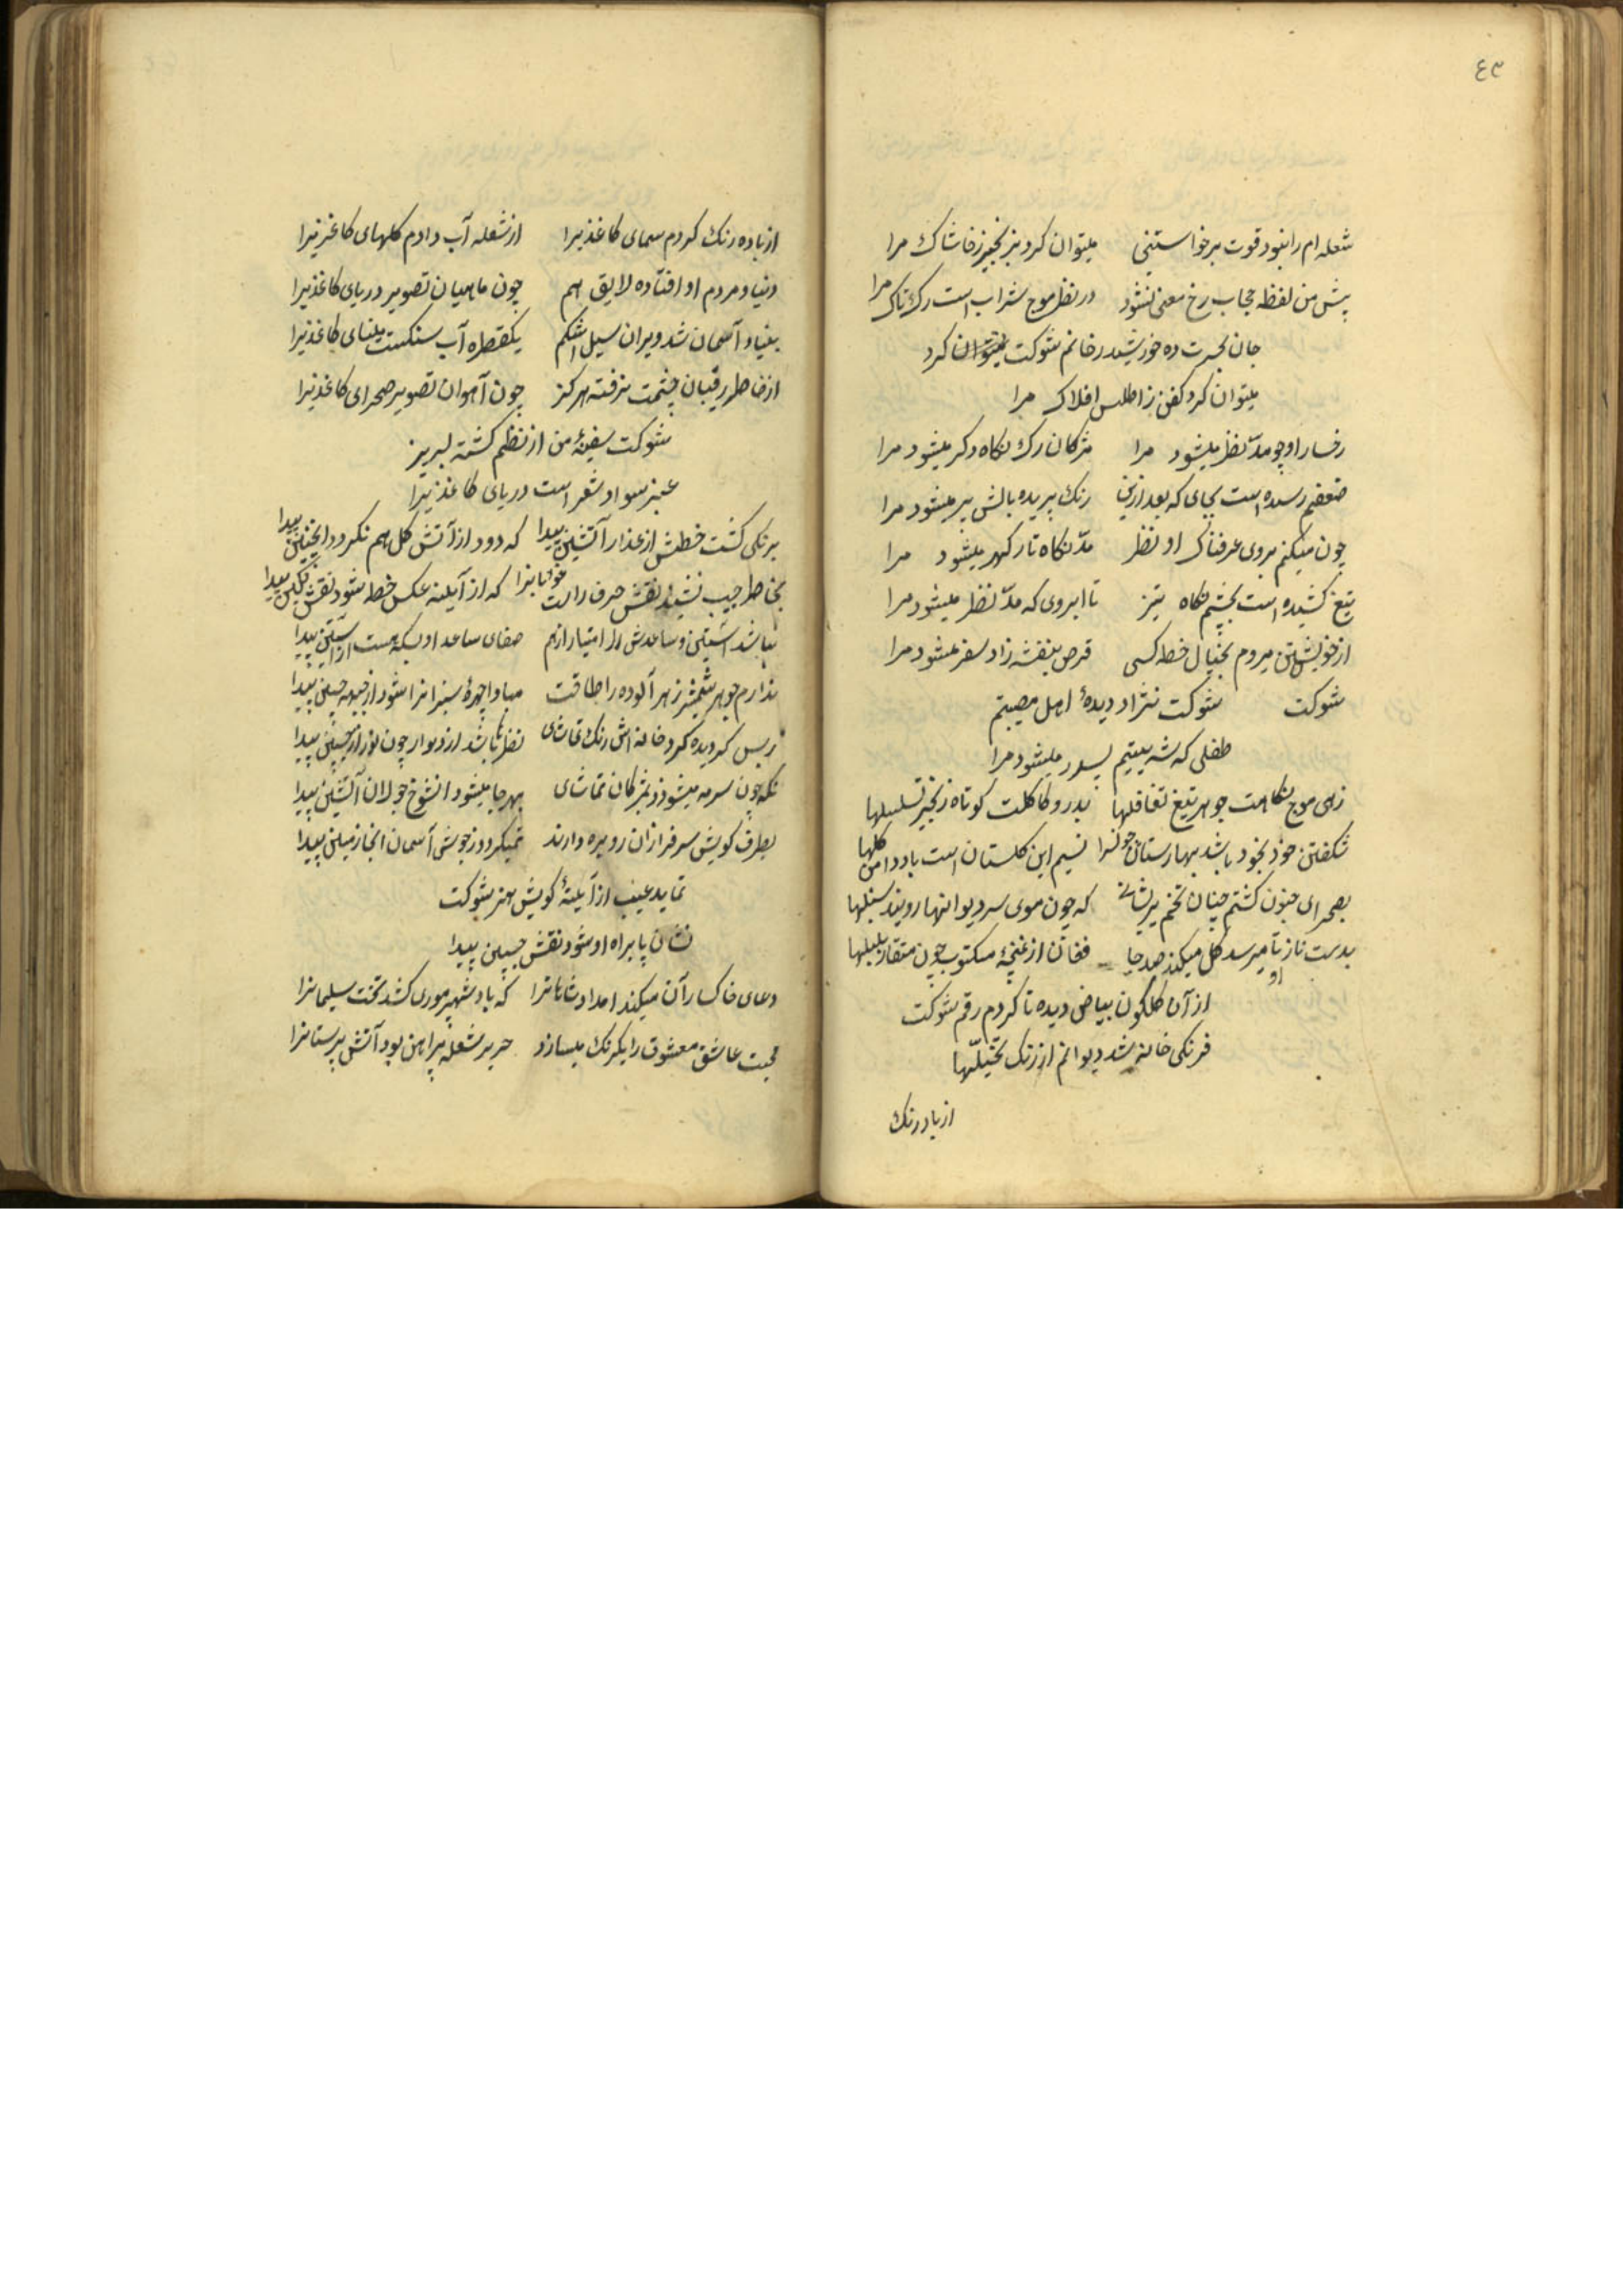 ٤٣
شعله ام را نبود قوت برخواستنی میتوان کرد بزنجیر ز خاشاک مرا
پیش من لفظ حجاب رخ معنی نشود در نظر موج شراب است رک تاک مرا
جان بحسرت ده خورشید رخانم شوکت میتوان کرد
میتوان کرد کفن ز اطلس افلاک مرا
رخسار او چو مدّ نظر میشود مرا مژکان رک نکاه دکر میشود مرا
ضعفم رسیده است بجای که بعد ازین رنک پریده بالش پر میشود مرا
چون میکنم بروی عرقناک او نظر مدّ نکاه تار کهر میشود مرا
تیغ کشیده است بچشم نکاه تیز تا ابروی که مدّ نظر میشود مرا
از خویشتن میروم بخیال خط کسی قرص بنفشه زاد سفر میشود مرا
شوکت شوکت نژاد دیدهٔ اهل مصیبتم
طفلی که شد یتیم پسر میشود مرا
زهی موج نکاهت جوهر تیغ تغافلها بدور کاکلت کوتاه زنجیر تسلسلها
شکفتن خود بخود باشد بهارستان خونرا نسیم این کلستان است باد دامن کلها
بصحرای جنون کشتم چنان تخم پریشانی که چون موی سر دیوانها رویند سنبلها
بدست ناز او تا میرسد کل میکند صد جا فغان از غنچهٔ مکتوب چون منقار بلبلها
از آن کلکون بیاض دیده تا کردم رقم شوکت
فرنکی خانه شد دیوانم از رنک تخیّلها
از باده رنک
از باده رنک کردم سیمای کاغذیرا از شعله آب دادم کلهای کاغذیرا
دنیا و مردم او افتاده لایق هم چون ماهیان تصویر دریای کاغذیرا
بنیاد آسمان شد ویران سیل اشکم یکقطره آب سنکست مینای کاغذیرا
از خاطر رقیبان چشمت نرفته هرکز چون آهوان تصویر صحرای کاغذیرا
شوکت سفینهٔ من از نظم کشته لبریز
عنبر سواد شعر است دریای کاغذیرا
برنکی کشت خطش از عذار آتشین پیدا که دود از آتش کل هم نکردد اینچنین پیدا
نقش حرف که از آیینه عکس خط شود نقش نکین پیدا
نباشد آستین و ساعدش را امتیاز از هم صفای ساعد او بسکه هست از آستین پیدا
ندارم جوهر شمشیر زهر آلوده را طاقت مبادا چهرهٔ سبز انرا شود از جبهه چین پیدا
ز بس کردیده کرد خانه اش رنک تماشای نظر باشد از دیوار چون نور از جبین پیدا
نکه چون سرمه میشود ز مژکان تماشای بهر جا میشود انشوخ جولان آتشین پیدا
بطرف کویش سرفرازان رو بره دارند نمیکردد ز جوشی آسمان انجا زمین پیدا
نماید عیب از آیینهٔ کویش هنر شوکت
نشان پا براه او شود نقش جبین پیدا
دعای خاکسار آن میکند امداد شاهانرا که باد شهپر موری کشد تخت سلیمانرا
محبت عاشق معشوق را یکرنک میسازد حریر شعله پیراهن بود آتش پرستانرا